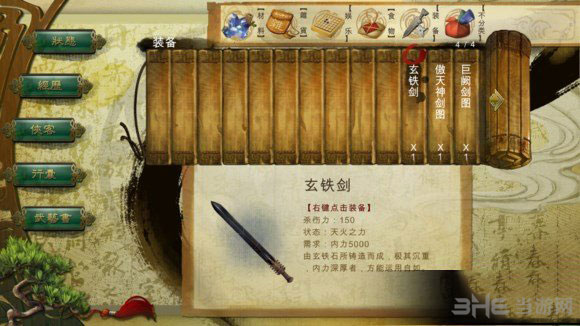 狀態
經歷
俠客
行囊
武藝書
【材料】
【雜貨】
【娱乐】
【食物】
【装备】
【不分类】
装备
4 / 4
玄铁剑
X1
傲天神剑图
X1
巨阙剑图
X1
玄铁剑
【右键点击装备】
杀伤力：150
状态：天火之力
需求：内力5000
由玄铁石所铸造而成，极其沉重
，内力深厚者，方能运用自如。
3HE 当游网